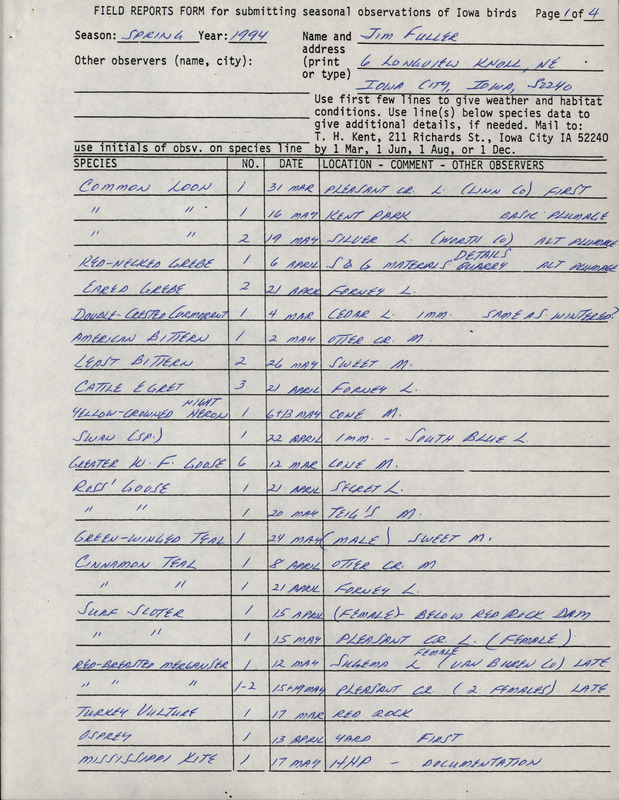 FIELD REPORTS FORM for submitting seasonal observations of Iowa birds Page 1 of 4
Season: SPRING Year: 1994 Name and JIM FULLER
address
Other observers (name, city): (print 6 LONGVIEW KNOLL, NE
or type) IOWA CITY, IOWA, 52240
Use first few lines to give weather and habitat
conditions. Use line(s) below species data to
give additional details, if needed. Mail to:
T. H. Kent, 211 Richards St., Iowa City IA 52240
use initials of obsv. on species line by 1 Mar, 1 Jun, 1 Aug, or 1 Dec.
SPECIES NO. DATE LOCATION - COMMENT - OTHER OBSERVERS
COMMON LOON 1 31 MAR PLEASANT CR. L. (LINN CO) FIRST
" " 1 16 MAY KENT PARK BASIC PLUMAGE
" " 2 19 MAY SILVER L. (WORTH CO) ALT PLUMAGE
RED-NECKED GREBE 1 6 APRIL S & G MATERIALS QUARRY DETAILS ALT PLUMAGE
EARED GREBE 2 21 APRIL FORNEY L.
DOUBLE-CRESTED CORMORANT 1 4 MAR CEDAR L. IMM. SAME AS WINTERED?
AMERICAN BITTERN 1 2 MAY OTTER CR. M.
LEAST BITTERN 2 26 MAY SWEET M.
CATTLE EGRET 3 21 APRIL FORNEY L.
YELLOW-CROWNED NIGHT HERON 1 6+13 MAY CONE M.
SWAN (SP.) 1 22 APRIL IMM. - SOUTH BLUE L.
GREATER W. F. GOOSE 6 12 MAR CONE M.
ROSS' GOOSE 1 21 APRIL SECRET L.
" " 1 20 MAY TEIG'S M.
GREEN-WINGED TEAL 1 24 MAY (MALE) SWEET M.
CINNAMON TEAL 1 8 APRIL OTTER CR. M
" " 1 21 APRIL FORNEY L.
SURF SCOTER 1 15 APRIL (FEMALE) - BELOW RED ROCK DAM
" " 1 15 MAY PLEASANT CR. L. (FEMALE)
RED-BREASTED MERGANSER 1 12 MAY SUGEMA L FEMALE (VAN BUREN CO) LATE
" " 1-2 15+19 MAY PLEASANT CR (2 FEMALES) LATE
TURKEY VULTURE 1 17 MAR RED ROCK
OSPREY 1 13 APRIL YARD FIRST
MISSISSIPPI KITE 1 17 MAY HHP - DOCUMENTATION